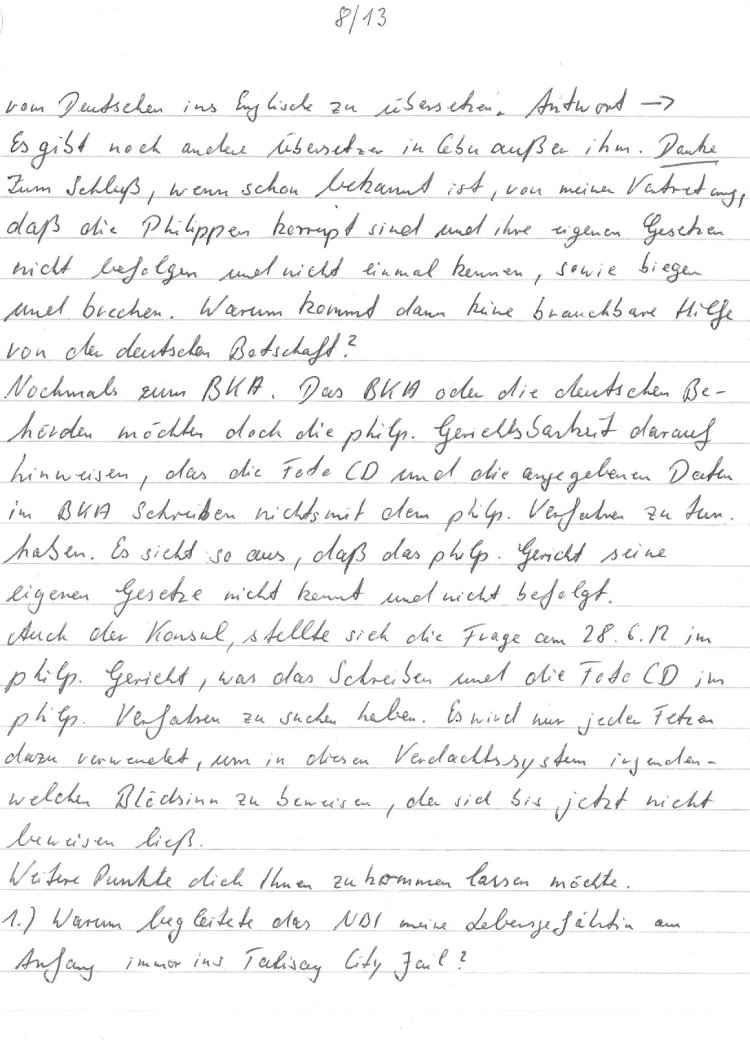 8/13
vom Deutschen ins Englische zu übersetzen. Antwort →
Es gibt noch andere Übersetzer in Cebu außer ihm. Danke
Zum Schluß, wenn schon bekannt ist, von meiner Vertretung,
daß die Philippen korrupt sind und ihre eigenen Gesetzen
nicht befolgen und nicht einmal kennen, sowie biegen
und brechen. Warum kommt dann keine brauchbare Hilfe
von der deutschen Botschaft?
Nochmals zum BKA. Das BKA oder die deutschen Be-
hörden möchten doch die philp. Gerichtsbarkeit darauf
hinweisen, das die Foto CD und die angegebenen Daten
im BKA Schreiben nichts mit dem philp. Verfahren zu tun.
haben. Es sieht so aus, daß das philp. Gericht seine
eigenen Gesetze nicht kennt und nicht befolgt.
Auch der Konsul, stellte sich die Frage am 28.6.12 im
philp. Gericht, was das Schreiben und die Foto CD im
philp. Verfahren zu suchen haben. Es wird nur jeder Fetzen
dazu verwendet, um in diesen Verdachtssystem irgenden-
welchen Blödsinn zu beweisen, der sich bis jetzt nicht
beweisen ließ.
Weitere Punkte dich Ihnen zukommen lassen möchte.
1.) Warum begleitete das NBI meine Lebensgefährtin am
Anfang immer ins Talisay City Jail?